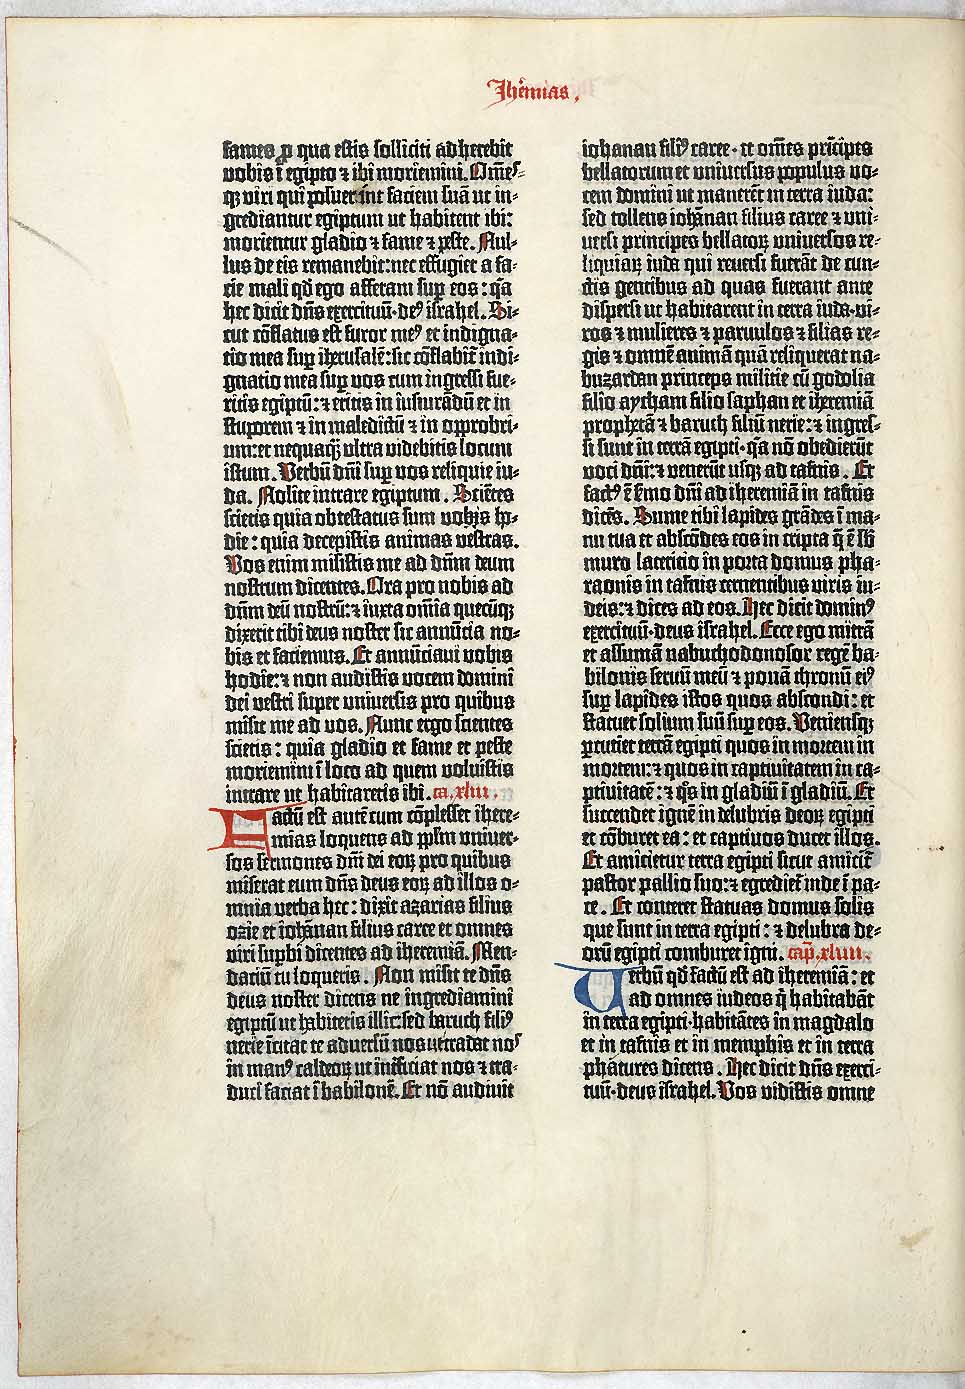 Jheremias.
fames ꝓ qua estis solliciti adherebit
vobis ĩ egipto ⁊ ibi moriemini. Om̃es-
qꝫ viri qui posuerint faciem suã ut in-
grediantur egiptum ut habitent ibi:
morientur gladio ⁊ fame ⁊ peste. Nul-
lus de eis remanebit: nec effugiet a fa-
cie mali qđ ego afferam sup eos: q̃a
hec dicit dñs exercituũ·deꝰ israhel. Si-
cut cõflatus est furor meꝰ et indigna-
tio mea sup iherusalẽ: sic cõflabit̃ indi-
gnatio mea sup vos cum ingressi fue-
ritis egiptũ: ⁊ eritis in iusiurãdũ et in
stuporem ⁊ in maledictũ ⁊ in opprobri-
um: et nequaq̃ʒ ultra videbitis locum
istum. Verbũ dñi sup vos reliquie iu-
da. Nolite intrare egiptum. Sciẽtes
scietis quia obtestatus sum vobis ho-
die: quia decepistis animas vestras.
Vos enim misistis me ad dñm deum
nostrum dicentes. Ora pro nobis ad
dñm deũ nostrũ: ⁊ iuxta om̃ia quecũqꝫ
dixerit tibi deus noster sic annũcia no-
bis et faciemus. Et annũciaui vobis
hodie: ⁊ non audistis vocem domini
dei vestri super universis pro quibus
misit me ad vos. Nunc ergo scientes
scietis: quia gladio et fame et peste
moriemini ĩ loco ad quem voluistis
intrare ut habitaretis ibi. ca. xliii.
Factũ est autẽ cum cõplesset ihere-
mias loquens ad pplm univer-
sos sermones dñi dei eoꝝ pro quibus
miserat eum dñs deus eoꝝ ad illos o-
mnia verba hec: dixit azarias filius
ozie et iohãnan filius caree et omnes
viri supbi dicentes ad iheremiã. Men-
daciũ tu loqueris. Non misit te dñs
deus noster dicens ne ingrediamini
egiptũ ut habitetis illic: sed baruch filiꝰ
nerie ĩcitat te adversũ nos ut tradat nos
in manꝰ caldeoꝝ ut inificiat nos ⁊ tra-
duci faciat ĩ babilonẽ. Et nõ audivit
iohanan filiꝰ caree·et om̃es prĩcipes
bellatorum et universus populus vo-
cem domini ut manerẽt in terra iuda:
sed tollens iohãnan filius caree ⁊ uni-
versi principes bellatoꝝ universos re-
liquiaꝝ iuda qui reversi fuerãt de cun-
ctis gentibus ad quas fuerant ante
dispersi ut habitarent in terra iuda·vi-
ros ⁊ mulieres ⁊ parvulos ⁊ filias re-
gis ⁊ omnẽ animã quã reliquerat na-
buzardan princeps militie cũ godolia
filio aycham filio saphan et iheremiã
prophetã ⁊ baruch filiũ nerie: ⁊ ingres-
si sunt in terrã egipti·q̃a nõ obedierũt
voci dñi: ⁊ venerũt usqꝫ ad tafnis. Et
factꝰ ẽ ẜmo dñi ad iheremiã in tafnis
dicẽs. Sume tibi lapides grãdes ĩ ma-
nu tua et abscõdes eos in cripta q̃ ẽ sб
muro latericio in porta domus pha-
raonis in tafnis cernentibus viris iu-
deis: ⁊ dices ad eos. Hec dicit dominꝰ
exercituũ·deus israhel. Ecce ego mittã
et assumã nabuchodonosor regẽ ba-
bilonis servũ meũ ⁊ ponã thronũ eiꝰ
sup lapides istos quos abscondi: et
statuet solium suũ sup eos. Veniensqꝫ
ꝑcutiet terrã egipti quos in mortem in
mortem: ⁊ quos in captiuitatem in ca-
ptiuitatẽ: ⁊ q̃s in gladiũ ĩ gladiũ. Et
succendet ignẽ in delubris deoꝝ egipti
et cõburet ea: et captivos ducet illos.
Et amicietur terra egipti sicut amicit̃
pastor pallio suo: ⁊ egrediet̃ inde ĩ pa-
ce. Et conteret statuas domus solis
que sunt in terra egipti: ⁊ delubra de-
orũ egipti comburet igni. cap̃. xliiii.
Verbũ qđ factũ est ad iheremiã: et
ad omnes iudeos q̃ habitabãt
in terra egipti·habitãtes in magdalo
et in tafnis et in memphis et in terra
phatures dicens. Hec dicit dñs exerci-
tuũ·deus israhel. Vos vidistis omne